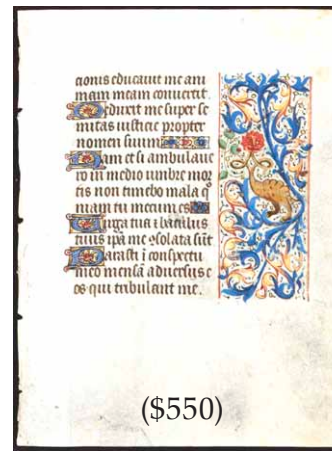 cionis educauit me ani
mam meam conuertit.
Deduxit me super se
mitas iusticie propter
nomen suum
Nam et si ambulaue
ro in medio umbre mor
tis non timebo mala q̄
niam tu mecum es
Virga tua ⁊ baculus
tuus ipā me ꝯsolata sūt
Parasti ī conspectu
meo mensā aduersus e
os qui tribulant me.
($550)